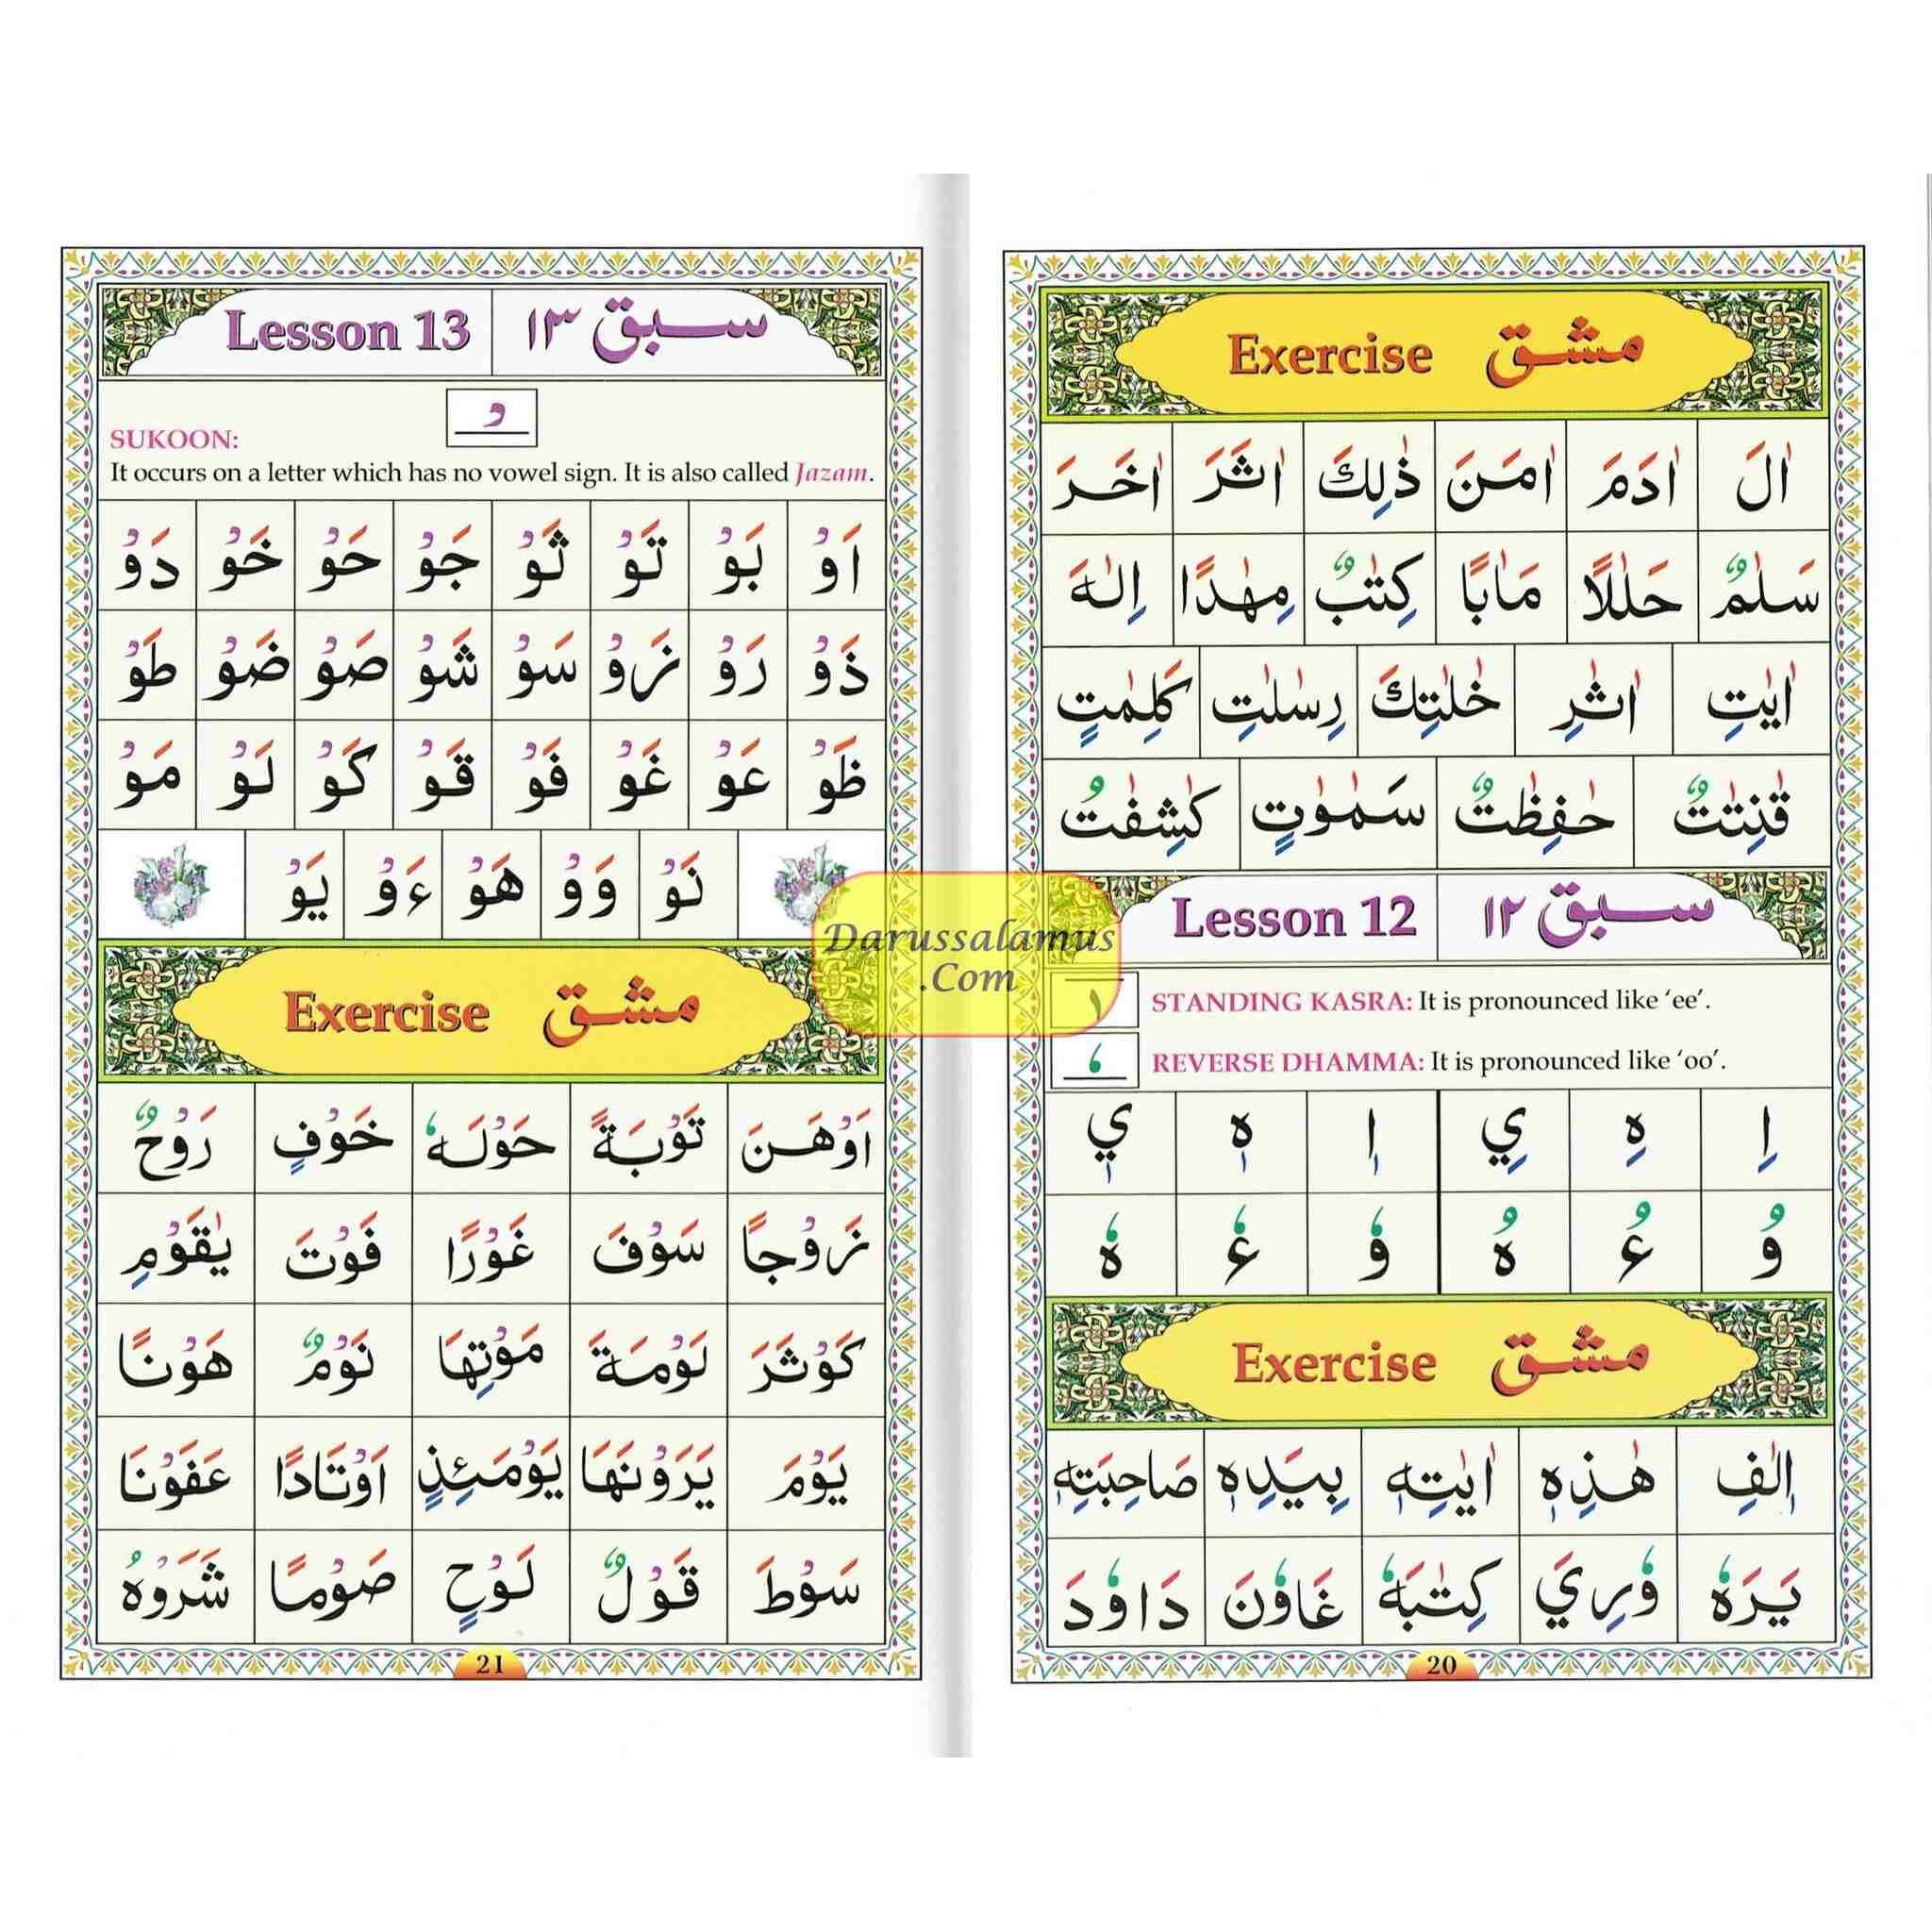 Exercise مشق
اٰلَ اٰدَمَ اٰمَنَ ذٰلِكَ اٰثَرَ اٰخَرَ
سَلٰمٌ حَلٰلًا مَاٰبًا كِتٰبٌ مِهٰدًا اِلٰهَ
اٰيٰتِ اٰثٰرِ خٰلٰتِكَ رِسٰلٰتِ كَلِمٰتٍ
قٰنِتٰتٌ حٰفِظٰتٌ سَمٰوٰتٍ كٰشِفٰتُ
Lesson 12 سبق ١٢
STANDING KASRA: It is pronounced like ‘ee’.
REVERSE DHAMMA: It is pronounced like ‘oo’.
اِ هِ يِ اٖ هٖ يٖ
وُ ءُ هُ وٗ ءٗ هٗ
Exercise مشق
اٖلٰفِ هٰذِهٖ اٰيٰتِهٖ بِيَدِهٖ صَاحِبَتِهٖ
يَرَهٗ وٗرِيَ كِتٰبَهٗ غَاوٗنَ دَاوٗدَ
20
Lesson 13 سبق ١٣
SUKOON:
It occurs on a letter which has no vowel sign. It is also called Jazam.
اَوْ بَوْ تَوْ ثَوْ جَوْ حَوْ خَوْ دَوْ
ذَوْ رَوْ زَوْ سَوْ شَوْ صَوْ ضَوْ طَوْ
ظَوْ عَوْ غَوْ فَوْ قَوْ كَوْ لَوْ مَوْ
نَوْ وَوْ هَوْ ءَوْ يَوْ
Exercise مشق
اَوْهَنَ تَوْبَةً حَوْلَهٗ خَوْفٍ رَوْحٌ
زَوْجًا سَوْفَ غَوْرًا فَوْتَ يٰقَوْمِ
كَوْثَرَ لَوْمَةَ مَوْتِهَا نَوْمٌ هَوْنًا
يَوْمَ يَرَوْنَهَا يَوْمَئِذٍ اَوْتَادًا عَفَوْنَا
سَوْطَ قَوْلٌ لَوْحٍ صَوْمًا شَرَوْهُ
21
Darussalamus
.Com